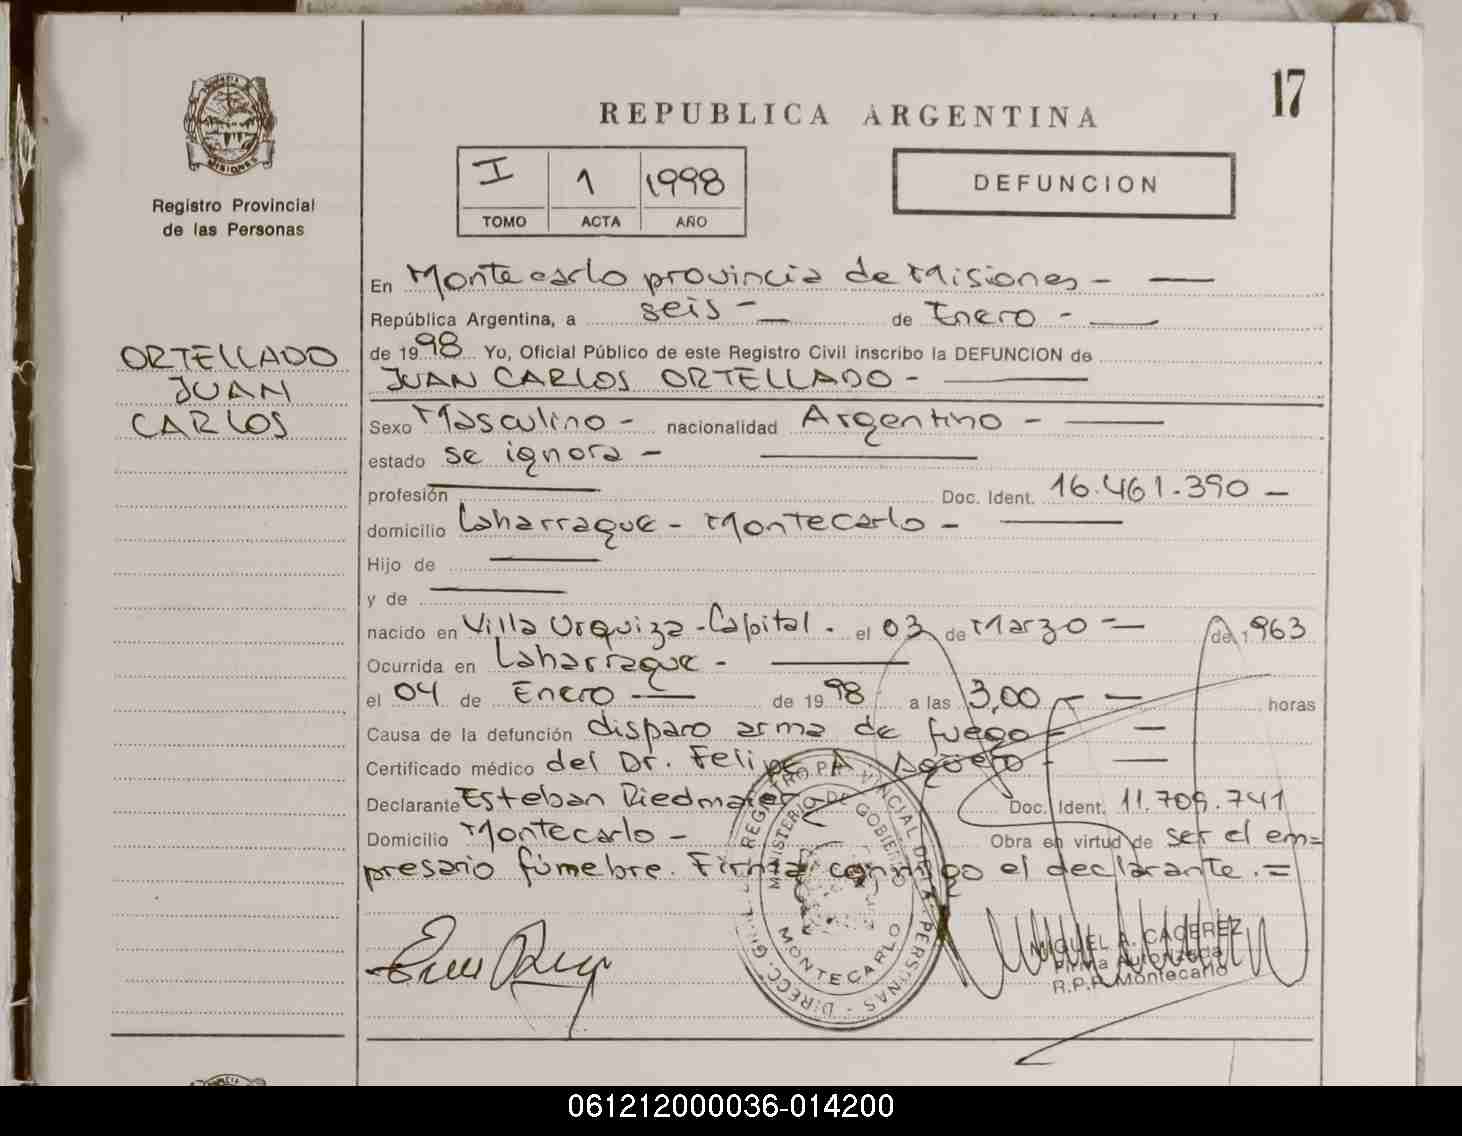 17
REPUBLICA ARGENTINA
MISIONES
Registro Provincial
de las Personas
I 1 1998
TOMO ACTA AÑO
DEFUNCION
ORTELLADO
JUAN
CARLOS
En Montecarlo provincia de Misiones -
República Argentina, a seis - de Enero -
de 1998 Yo, Oficial Público de este Registro Civil inscribo la DEFUNCION de
JUAN CARLOS ORTELLADO -
Sexo Masculino - nacionalidad Argentino -
estado se ignora -
profesión Doc. Ident. 16.461.390 -
domicilio Laharrague - Montecarlo -
Hijo de
y de
nacido en Villa Urquiza - Capital - el 03 de Marzo - de 1963
Ocurrida en Laharrague -
el 04 de Enero de 1998 a las 3,00 - horas
Causa de la defunción disparo arma de fuego -
Certificado médico del Dr. Felipe A. Agüero -
Declarante Esteban Riedmaier - Doc. Ident. 11.709.741
Domicilio Montecarlo - Obra en virtud de ser el em=
presario fúmebre. Firma conmigo el declarante. =
DIRECC. GRAL. REGISTRO PROVINCIAL DE LAS PERSONAS
MINISTERIO DE GOBIERNO
MONTECARLO
MIGUEL A. CACEREZ
Firma Autorizada
R.P.P. Montecarlo
061212000036-014200